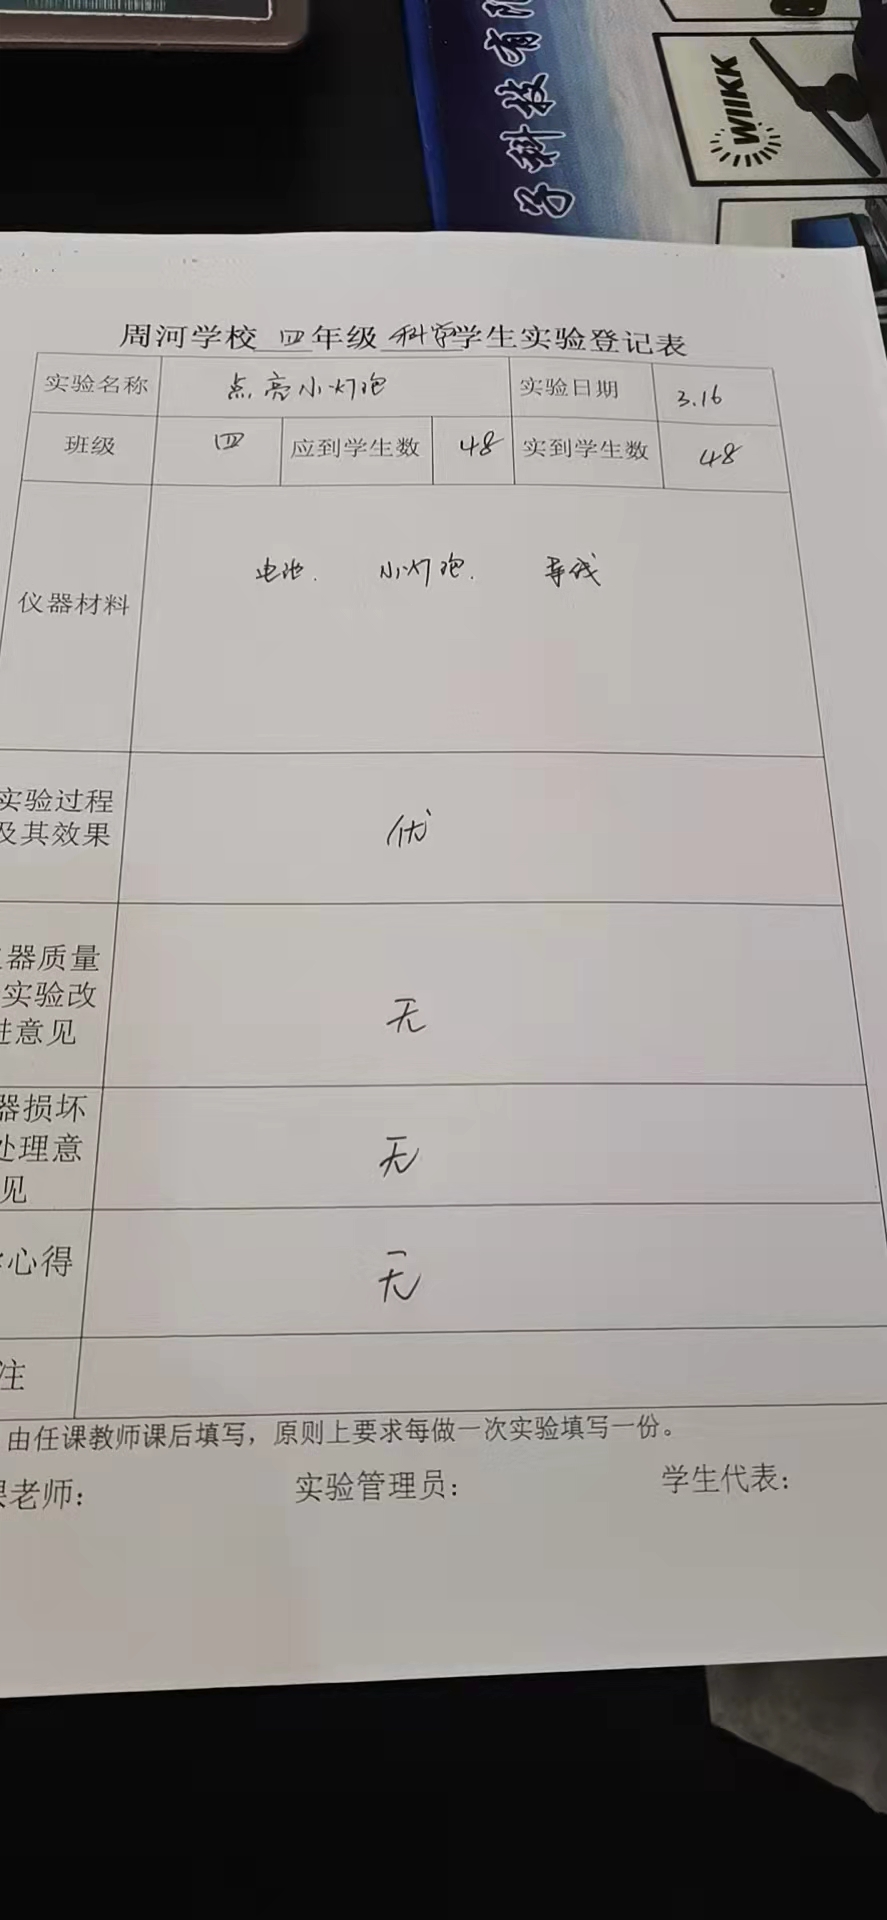 子科技有
WIIKK
周河学校 四 年级 科学 学生实验登记表
实验名称 点亮小灯泡 实验日期 3.16
班级 四 应到学生数 48 实到学生数 48
仪器材料 电池. 小灯泡. 导线
实验过程
及其效果
优
器质量
实验改
进意见
无
器损坏
处理意
见
无
心得
无
注
由任课教师课后填写，原则上要求每做一次实验填写一份。
课老师： 实验管理员： 学生代表：